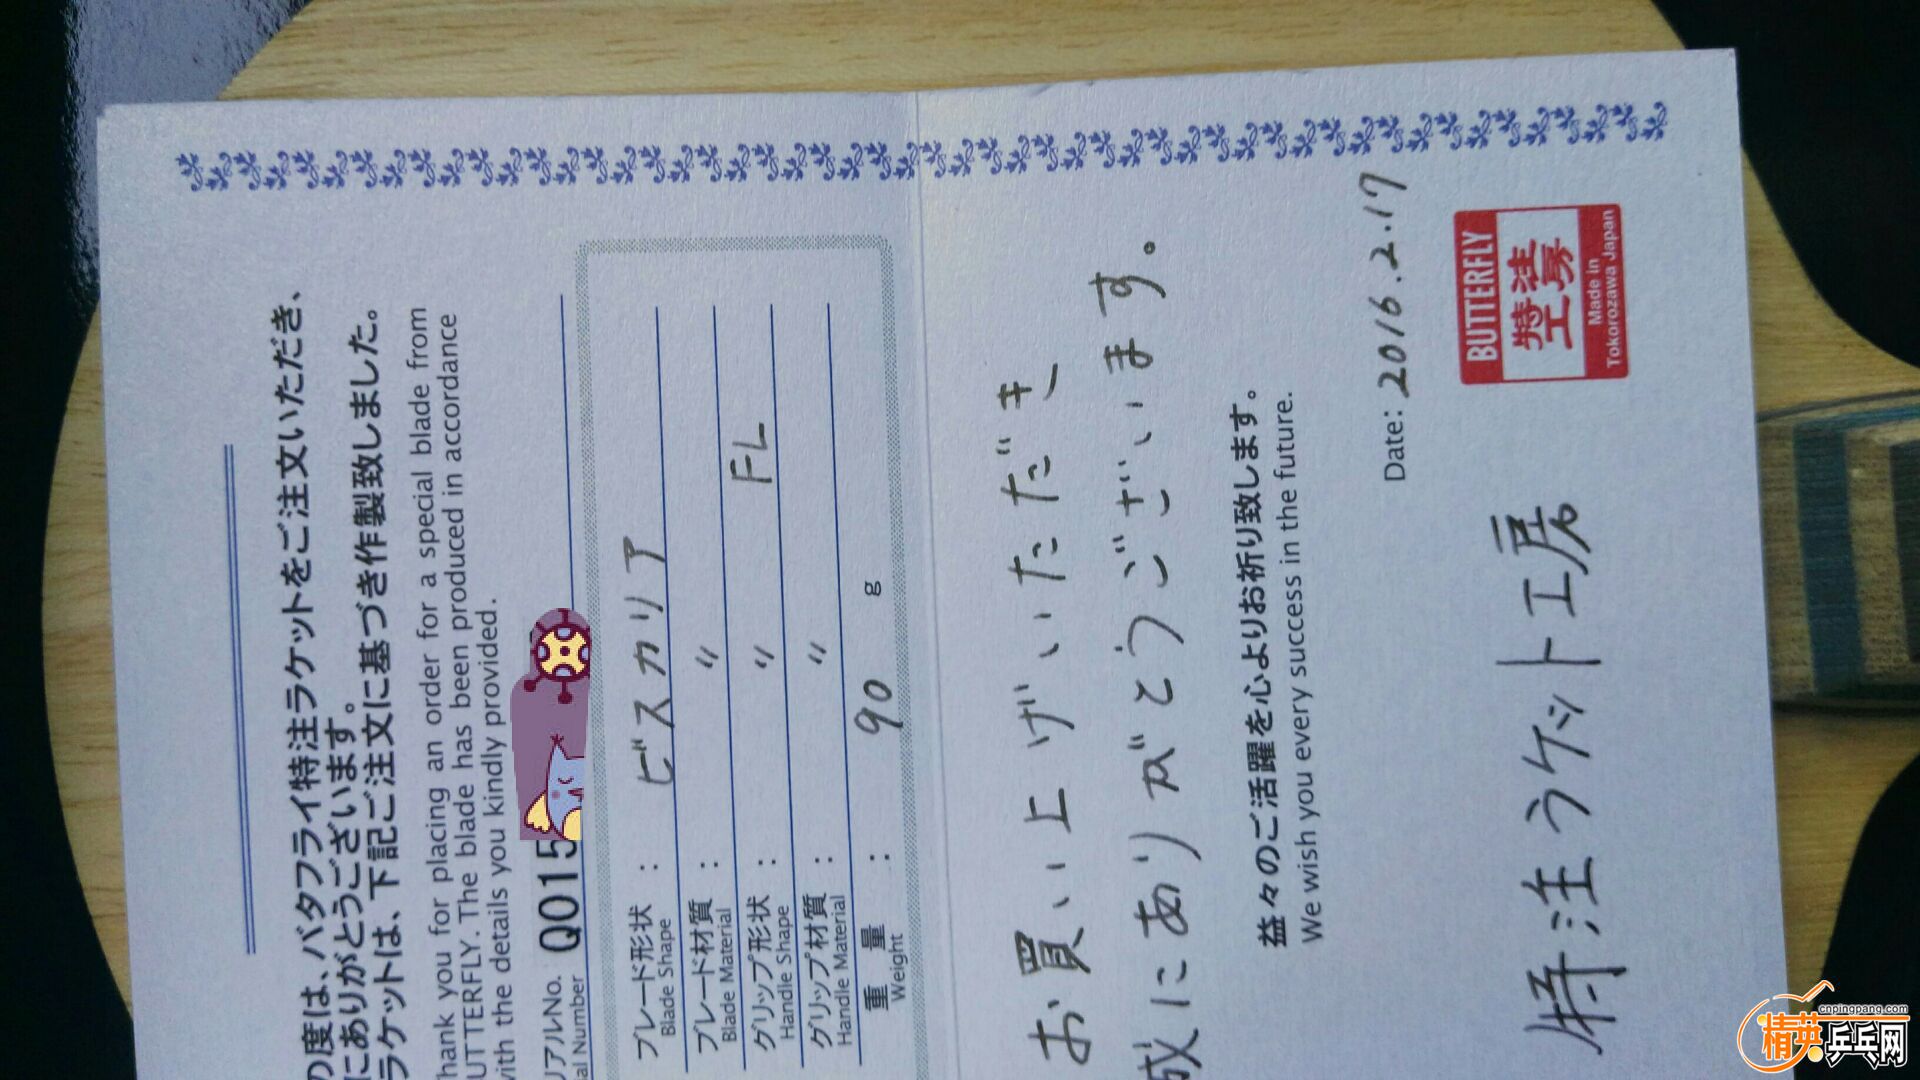 の度は、バタフライ特注ラケットをご注文いただき、
にありがとうございます。
ラケットは、下記ご注文に基づき作製致しました。
hank you for placing an order for a special blade from
UTTERFLY. The blade has been produced in accordance
with the details you kindly provided.
リアルNo. Q015
al Number
ブレード形状 : ビスカリア
Blade Shape
ブレード材質 : 〃
Blade Material
グリップ形状 : 〃 FL
Handle Shape
グリップ材質 : 〃
Handle Material
重 量 : 90 g
Weight
お買い上げいただき
誠にありがとうございます。
益々のご活躍を心よりお祈り致します。
We wish you every success in the future.
Date: 2016.2.17
特注ラケット工房
BUTTERFLY
特注
工房
Made in
Tokorozawa Japan
cnpingpang.com
精英乒乓网